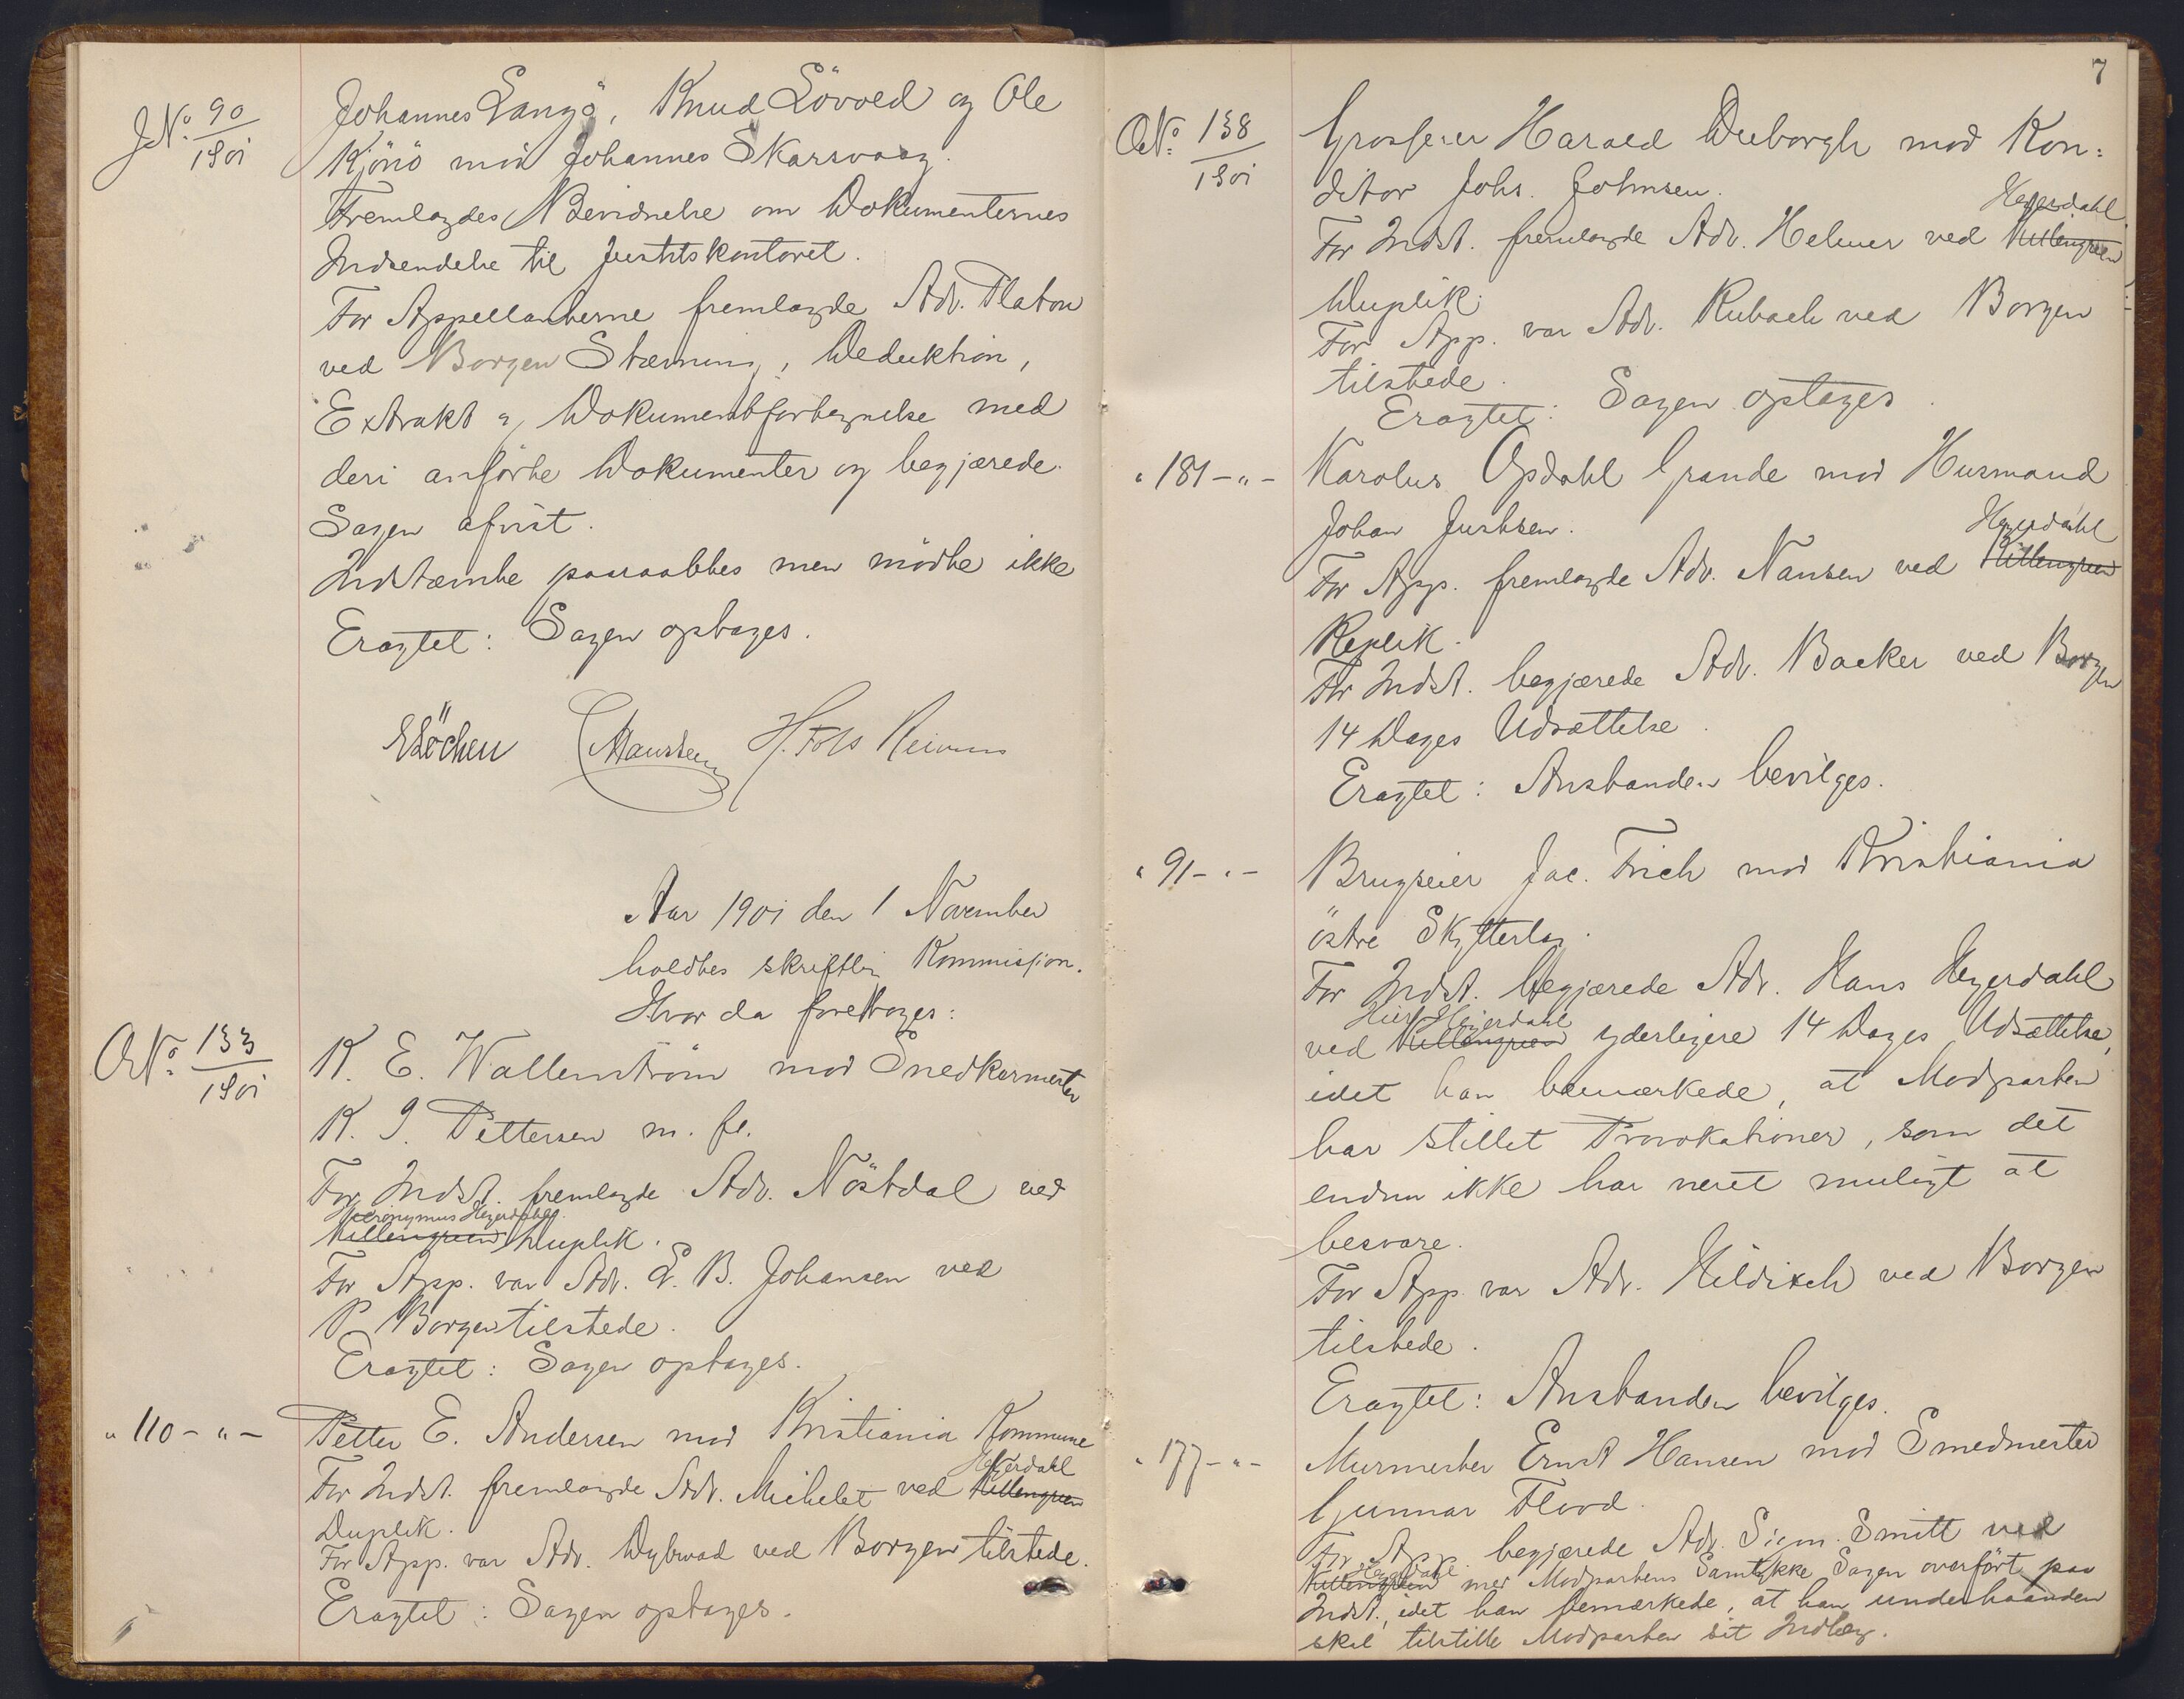 J.N.º 90/1901
Johannes Langö, Knud Lövold og Ole
Kjönö mod Johannes Skarsvaag.
Fremlagdes Bevidnelse om Dokumenternes
Indsendelse til Justitskontoret.
For Appellanterne fremlagde Adv. Platou
ved Borgen Stævning, Deduktion,
Extrakt og Dokumentfortegnelse med
deri anförte Dokumenter og begjærede
Sagen afvist.
Indstævnte paaraabtes men mödte ikke
Eragtet: Sagen optages.
ELöchen CHansteen H. Foss Reimers
Aar 1901 den 1 November
holdtes skriftlig Kommission.
Hvor da foretoges:
O.N.º 133/1901
K. E. Wallenström mod Snedkermester
K. J. Pettersen m. fl.
For Indst. fremlagde Adv. Nöstdal ved
Hieronymus Heyerdahl
Killengreen Duplik.
For App. var Adv. L. B. Johansen ved
P Borgen tilstede.
Eragtet: Sagen optages.
" 110 - " -
Petter E. Andersen mod Kristiania Kommune
Heyerdahl
For Indst. fremlagde Adv. Michelet ved Killengreen
Duplik.
For App. var Adv. Dybwad ved Borgen tilstede.
Eragtet: Sagen optages.
7
O.N.º 138/1901
Grosserer Harald Dieborgh mod Kon:
ditor Johs. Johnsen.
Heyerdahl
For Indst. fremlagde Adv. Helmer ved Killengreen
Duplik.
For App. var Adv. Rubach ved Borgen
tilstede.
Eragtet: Sagen optages.
" 181 - " -
Karolus Opdahl Grande mod Husmand
Johan Justsen.
Heyerdahl
For App. fremlagde Adv. Nansen ved Killengreen
Replik.
For Indst. begjærede Adv. Backer ved Borgen
14 Dages Udsættelse.
Eragtet: Anstanden bevilges.
" 91 - " -
Brugseier Jac. Trich mod Kristiania
östre Skytterlag.
For Indst. begjærede Adv. Hans Heyerdahl
Hier Heyerdahl
ved Killengreen yderligere 14 Dages Udsættelse,
idet han bemærkede, at Modparten
har stillet Provokationer, som det
endnu ikke har været muligt at
besvare.
For App. var Adv. Hildisch ved Borgen
tilstede.
Eragtet: Anstanden bevilges.
" 177 - " -
Murmester Ernst Hansen mod Smedmester
Gunnar Flood.
For App. begjærede Adv. Sigm. Smitt ved
Heyerdahl
Killengreen med Modpartens Samtykke Sagen overfört paa
Indst., idet han bemærkede, at han underhaanden
skal tilstille Modparten sit Indlæg.